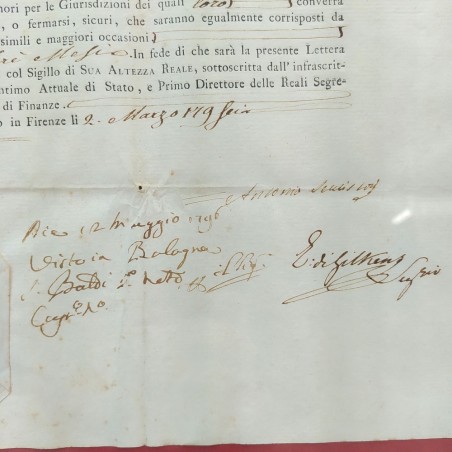 nori per le Giurisdizioni dei quali loro converrà
, o fermarsi, sicuri, che saranno egualmente corrisposti da
simili e maggiori occasioni
Mesi .In fede di che sarà la presente Lettera
col Sigillo di SUA ALTEZZA REALE, sottoscritta dall' infrascrit-
ntimo Attuale di Stato, e Primo Direttore delle Reali Segre-
di Finanze.
o in Firenze li 2. Marzo 179 Seia
Antonio
Die 12 Maggio 1796
Visto in Bologna
Baldi
E. di Gilkens
Segrio